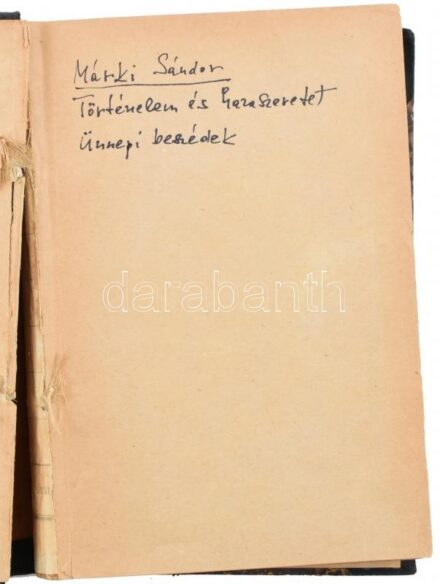 Márki Sándor
Történelem és hazaszeretet
Ünnepi beszédek
darabanth